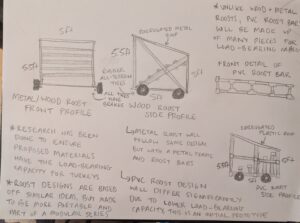 5ft
CORRUGATED METAL ROOF
5.5ft
RUBBER ALL-TERRAIN TIRES
5.5ft
5ft
ALL TIRES HAVE BRAKES
METAL/WOOD ROOST FRONT PROFILE
WOOD ROOST SIDE PROFILE
*UNLIKE WOOD + METAL
ROOSTS, PVC ROOST BAR
WILL BE MADE UP
OF MANY PIECES FOR
LOAD-BEARING
FRONT DETAIL OF
PVC ROOST BAR
*RESEARCH HAS BEEN
DONE TO ENSURE
PROPOSED MATERIALS
HAVE THE LOAD-BEARING
CAPACITY FOR TURKEYS
*ROOST DESIGNS ARE BASED
OFF SIMILAR IDEAS, BUT MADE
TO BE MORE PORTABLE AND
PART OF A MODULAR SERIES
METAL ROOST WILL
FOLLOW SAME DESIGN
BUT WITH A METAL FRAME
AND ROOST BARS
PVC ROOST DESIGN
WILL DIFFER SIGNIFICANTLY
DUE TO LOWER LOAD-BEARING
CAPACITY. THIS IS AN INITIAL PROTOTYPE
CORRUGATED
PLASTIC ROOF
5ft
PVC ROOST
SIDE PROFILE